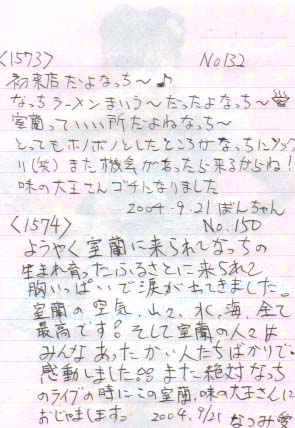 〈1573〉 No132
初来店だよなっち〜♪
なっちラーメンまいう〜だったよなっち〜
室蘭っていい所だよねなっち〜
とってもホノボノとしたところがなっちにソック
リ(笑)また機会があったら来るからね!
味の大王さんゴチになりました
2004.9.21 ぼんちゃん
〈1574〉 No.150
ようやく室蘭に来られてなっちの
生まれ育ったふるさとに来られて
胸いっぱいで涙が出てきました。
室蘭の空気、山々、水、海、全て
最高です!そして室蘭の人々は
みんなあったかい人たちばかりで
感動しました。また絶対なっち
のライブの時にこの室蘭、味の大王さんに
おじゃまします。 2004.9/21 なつみ愛